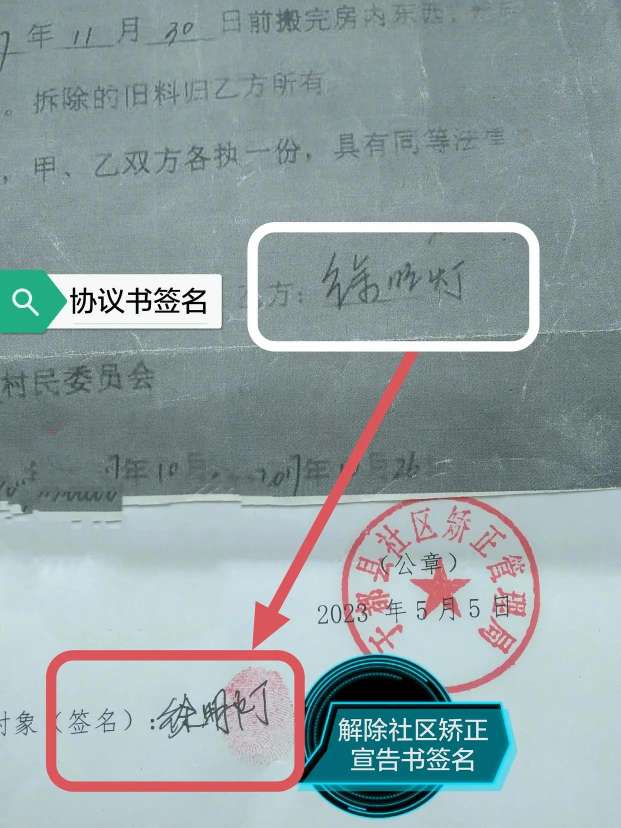 年 11 月 30 日前搬完房内东西，
。拆除的旧料归乙方所有
，甲、乙双方各执一份，具有同等法律
协议书签名
乙方：徐明灯
村民委员会
7年10月 2017年10月26
于都县社区矫正管理局
（公章）
2023 年 5 月 5 日
对象（签名）:徐明灯
解除社区矫正
宣告书签名